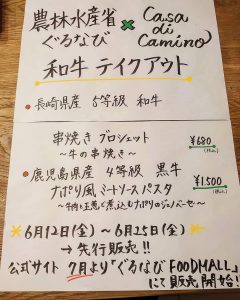 農林水産省 × Casa
ぐるなび di
Camino
和牛 テイクアウト
●長崎県産 5等級 和牛
串焼き ブロシェット ¥680
～牛の串焼き～ (税込)
●鹿児島県産 4等級 黒牛
ナポリ風ミートソースパスタ ¥1,500
～牛肉と玉葱で煮込むナポリのジェノベーゼ～ (税込)
6月12日(金) ～ 6月25日(金)
→ 先行販売!!
公式サイト 7月より「ぐるなびFOODMALL」
にて販売開始!